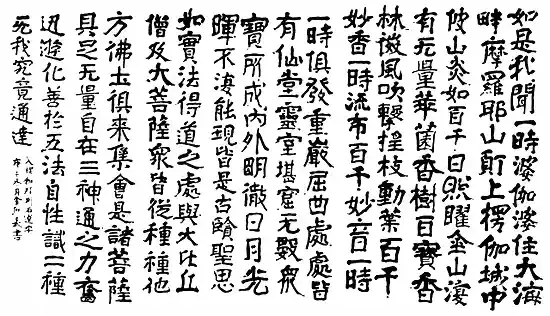 如是我聞一時婆伽婆住大海
畔摩羅耶山頂上楞伽城中
彼山炎如百千日照曜金山復
有无量華薗香樹百寶香
林微風吹擊搖枝動葉百千
妙香一時流布百千妙音一時
一時俱發重巖屈曲處處皆
有仙堂靈室堪窟无數衆
寶所成內外明徹日月光
暉不復能現皆是古賢聖思
如實法得道之處與大比丘
僧及大菩薩衆皆從種種他
方佛土俱來集會是諸菩薩
具足无量自在三神通之力奮
迅遊化善於五法自性識二種
无我究竟通達